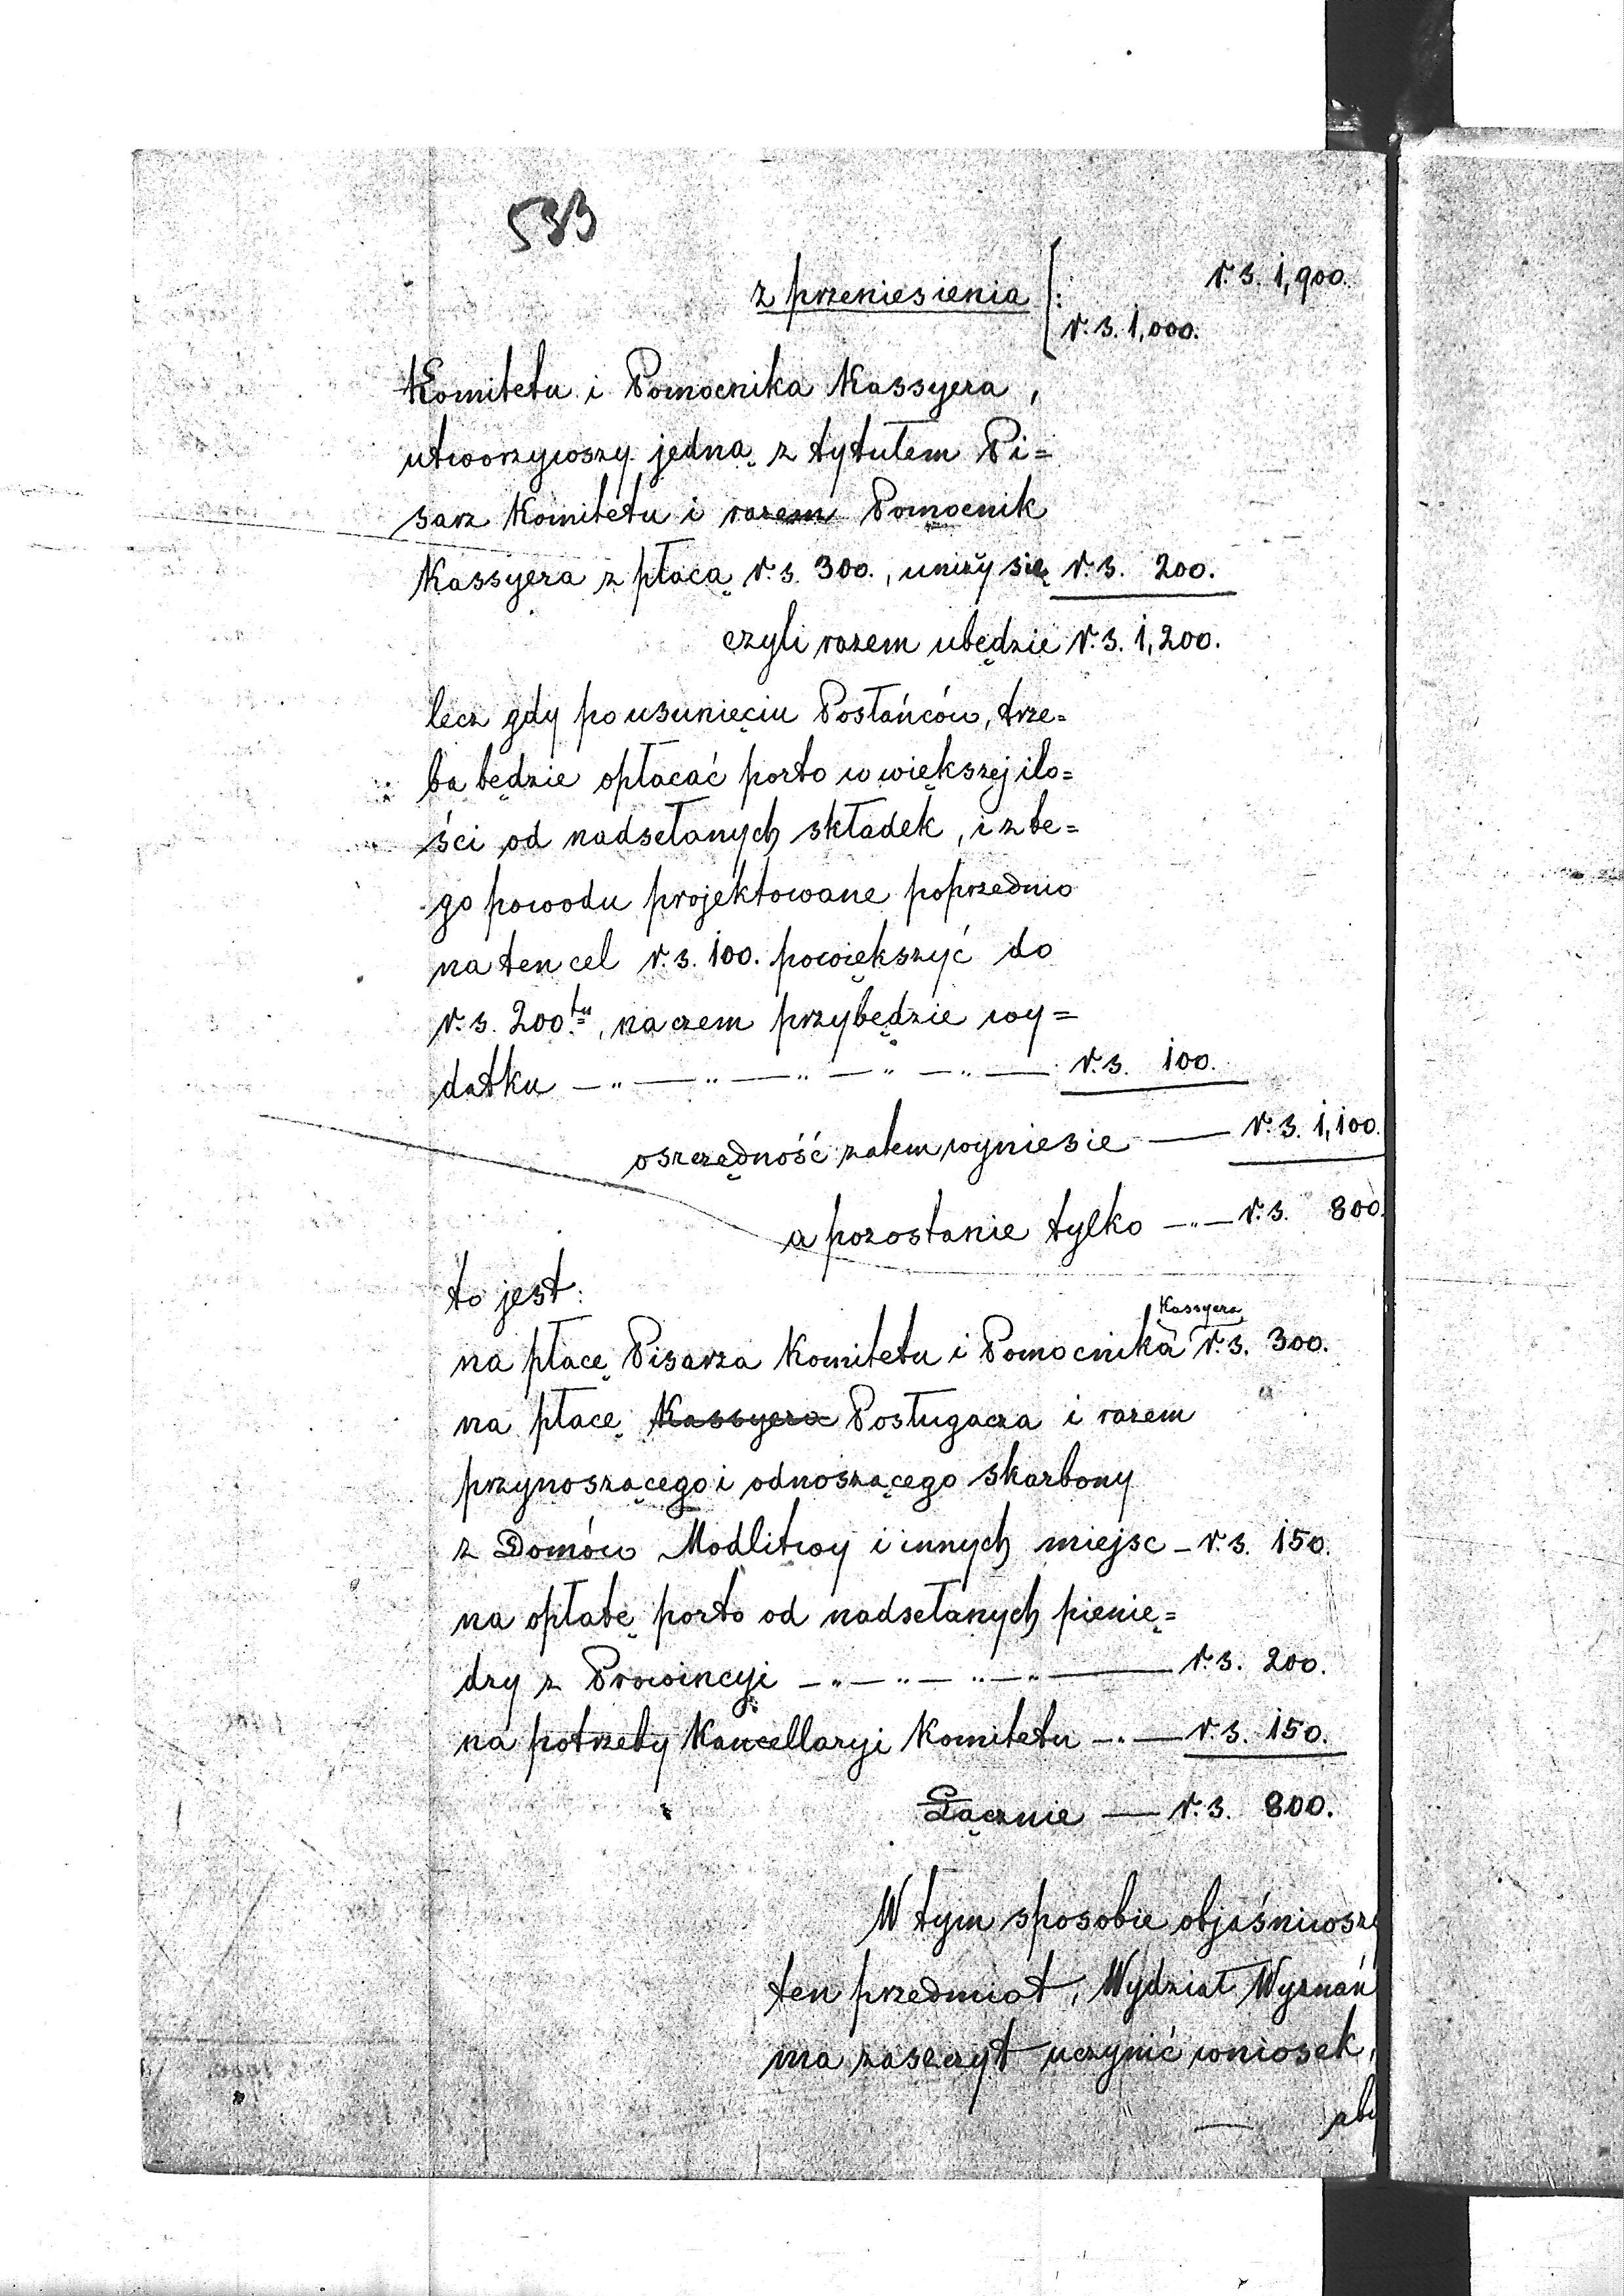 533
z przeniesienia : r. s. 1,900.
r. s. 1,000.
Komitetu i Pomocnika Kassyera,
utworzywszy jedną z tytułem Pi=
sarz Komitetu i razem Pomocnik
Kassyera z płacą r. s. 300., uniży się r. s. 200.
czyli razem ubędzie r. s. 1,200.
lecz gdy po usunięciu Posłańców, trze=
ba będzie opłacać porto w większej ilo=
ści od nadsełanych składek, i z te=
go powodu projektowane poprzednio
na ten cel r. s. 100. powiększyć do
r. s. 200.tu, na czem przybędzie wy=
datku — „ — „ — „ — „ — „ — r. s. 100.
oszczędność zatem wyniesie — r. s. 1,100.
a pozostanie tylko — „ — r. s. 800.
to jest:
Kassyera
na płacę Pisarza Komitetu i Pomocnika r. s. 300.
na płacę Kassyera Posługacza i razem
przynoszącego i odnoszącego skarbony
z Domów Modlitwy i innych miejsc — r. s. 150.
na opłatę porto od nadsełanych pienię=
dzy z Prowincyi — „ — „ — „ — „ — r. s. 200.
na potrzeby Kancellaryi Komitetu — „ — r. s. 150.
Łącznie — r. s. 800.
W tym sposobie objaśniwszy
ten przedmiot, Wydział Wyznań
ma zaszczyt uczynić wniosek,
— aby